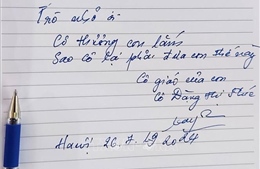 Trò cuộc ơi
Cô thương con lắm
Sao cô lại phải đưa con thế này
Cô giáo của con
Cô Đặng Thị Phúc
Hanội 26.7.2024